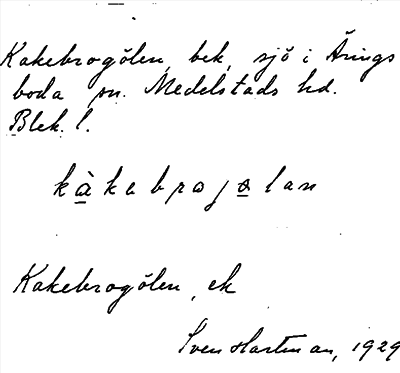 Kakebrogölen, bek, sjö i Årings
boda sn. Medelstads hd.
Blek. l.
kàkebrojølan
Kakebrogölen, ek
Sven Hartman, 1929